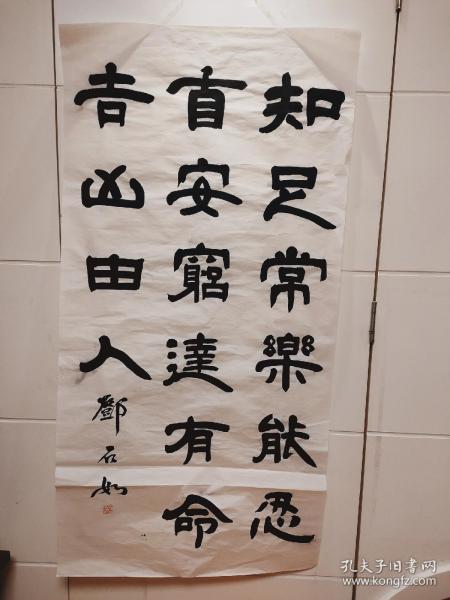 知足常樂能忍
自安窮達有命
吉凶由人
鄧石如
孔夫子旧书网
www.kongfz.com